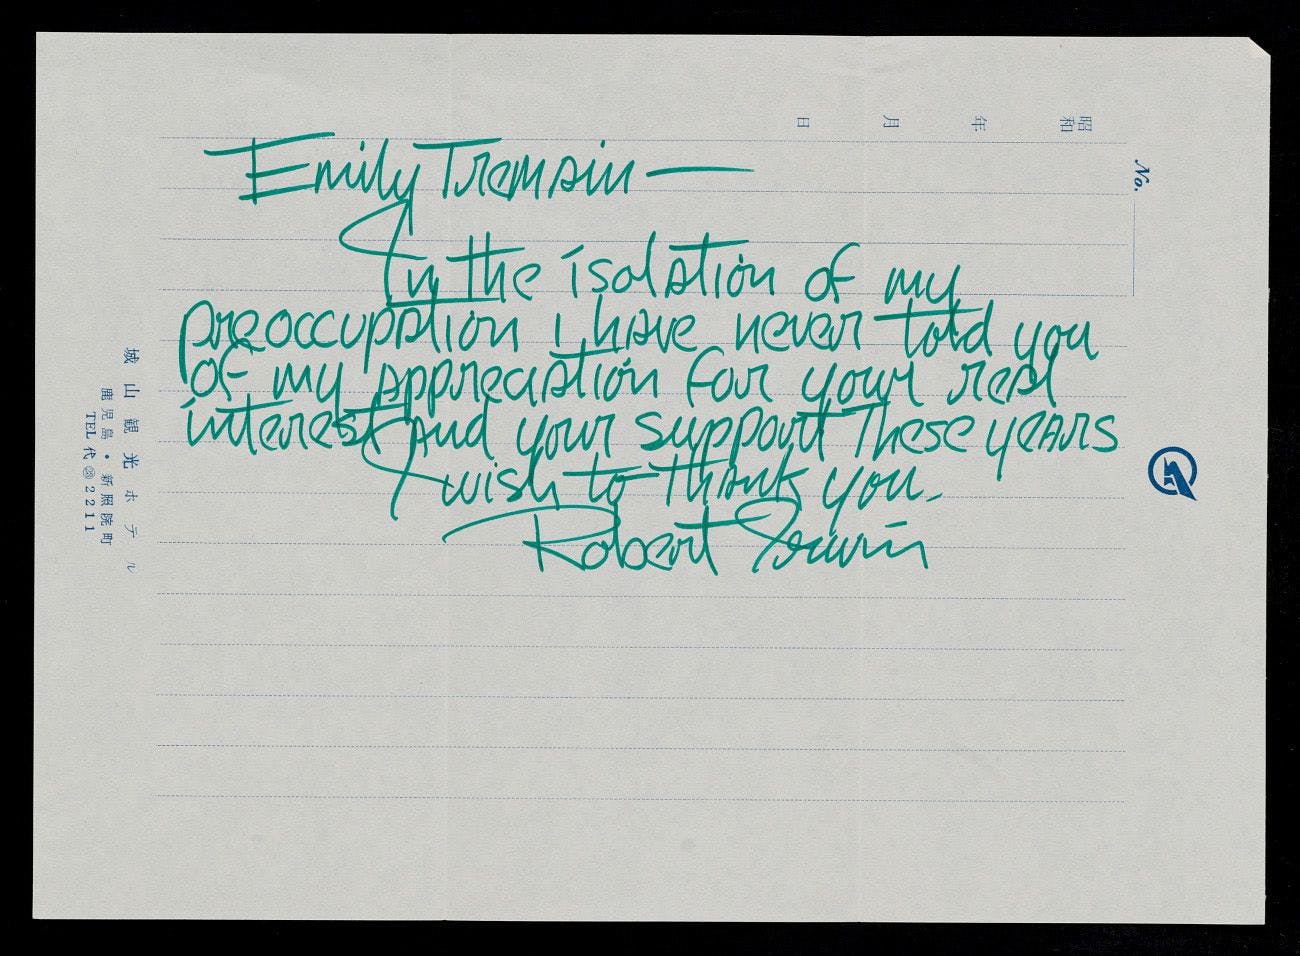 昭和 年 月 日
No.
Emily Tremain—
In the isolation of my
preoccupation i have never told you
of my appreciation for your real
interest and your support These years
I wish to thank you.
Robert Irwin
城山観光ホテル
鹿児島・新照院町
TEL 代 2211